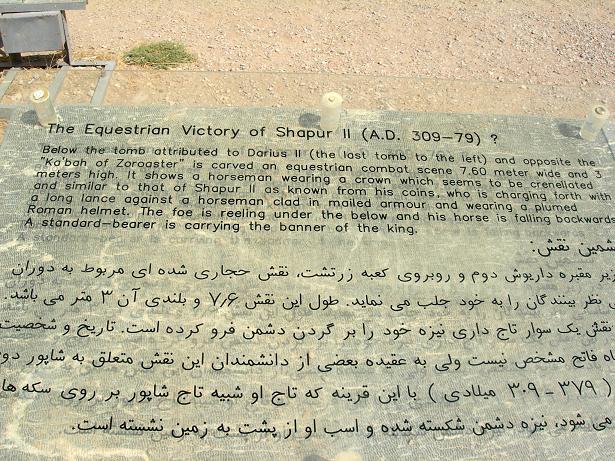 The Equestrian Victory of Shapur II (A.D. 309-79) ?
Below the tomb attributed to Darius II (the last tomb to the left) and opposite the
"Ka'bah of Zoroaster" is carved an equestrian combat scene 7,60 meter wide and 3
meters high. It shows a horseman wearing a crown which seems to be crenellated
and similar to that of Shapur II as known from his coins, who is charging forth with
a long lance against a horseman clad in mailed armour and wearing a plumed
Roman helmet. The foe is reeling under the below and his horse is falling backwards
A standard-bearer is carrying the banner of the king.
نقش:
زیر مقبره داریوش دوم و روبروی کعبه زرتشت، نقش حجاری شده ای مربوط به دوران
نظر بینندگان را به خود جلب می نماید. طول این نقش ۷٫۶ و بلندی آن ۳ متر می باشد.
نقش یک سوار تاج داری نیزه خود را بر گردن دشمن فرو کرده است. تاریخ و شخصیت
فاتح مشخص نیست ولی به عقیده بعضی از دانشمندان این نقش متعلق به شاپور دوم
( ۳۷۹ - ۳۰۹ میلادی ) با این قرینه که تاج او شبیه تاج شاپور بر روی سکه ها
می شود، نیزه دشمن شکسته شده و اسب او از پشت به زمین نشسته است.